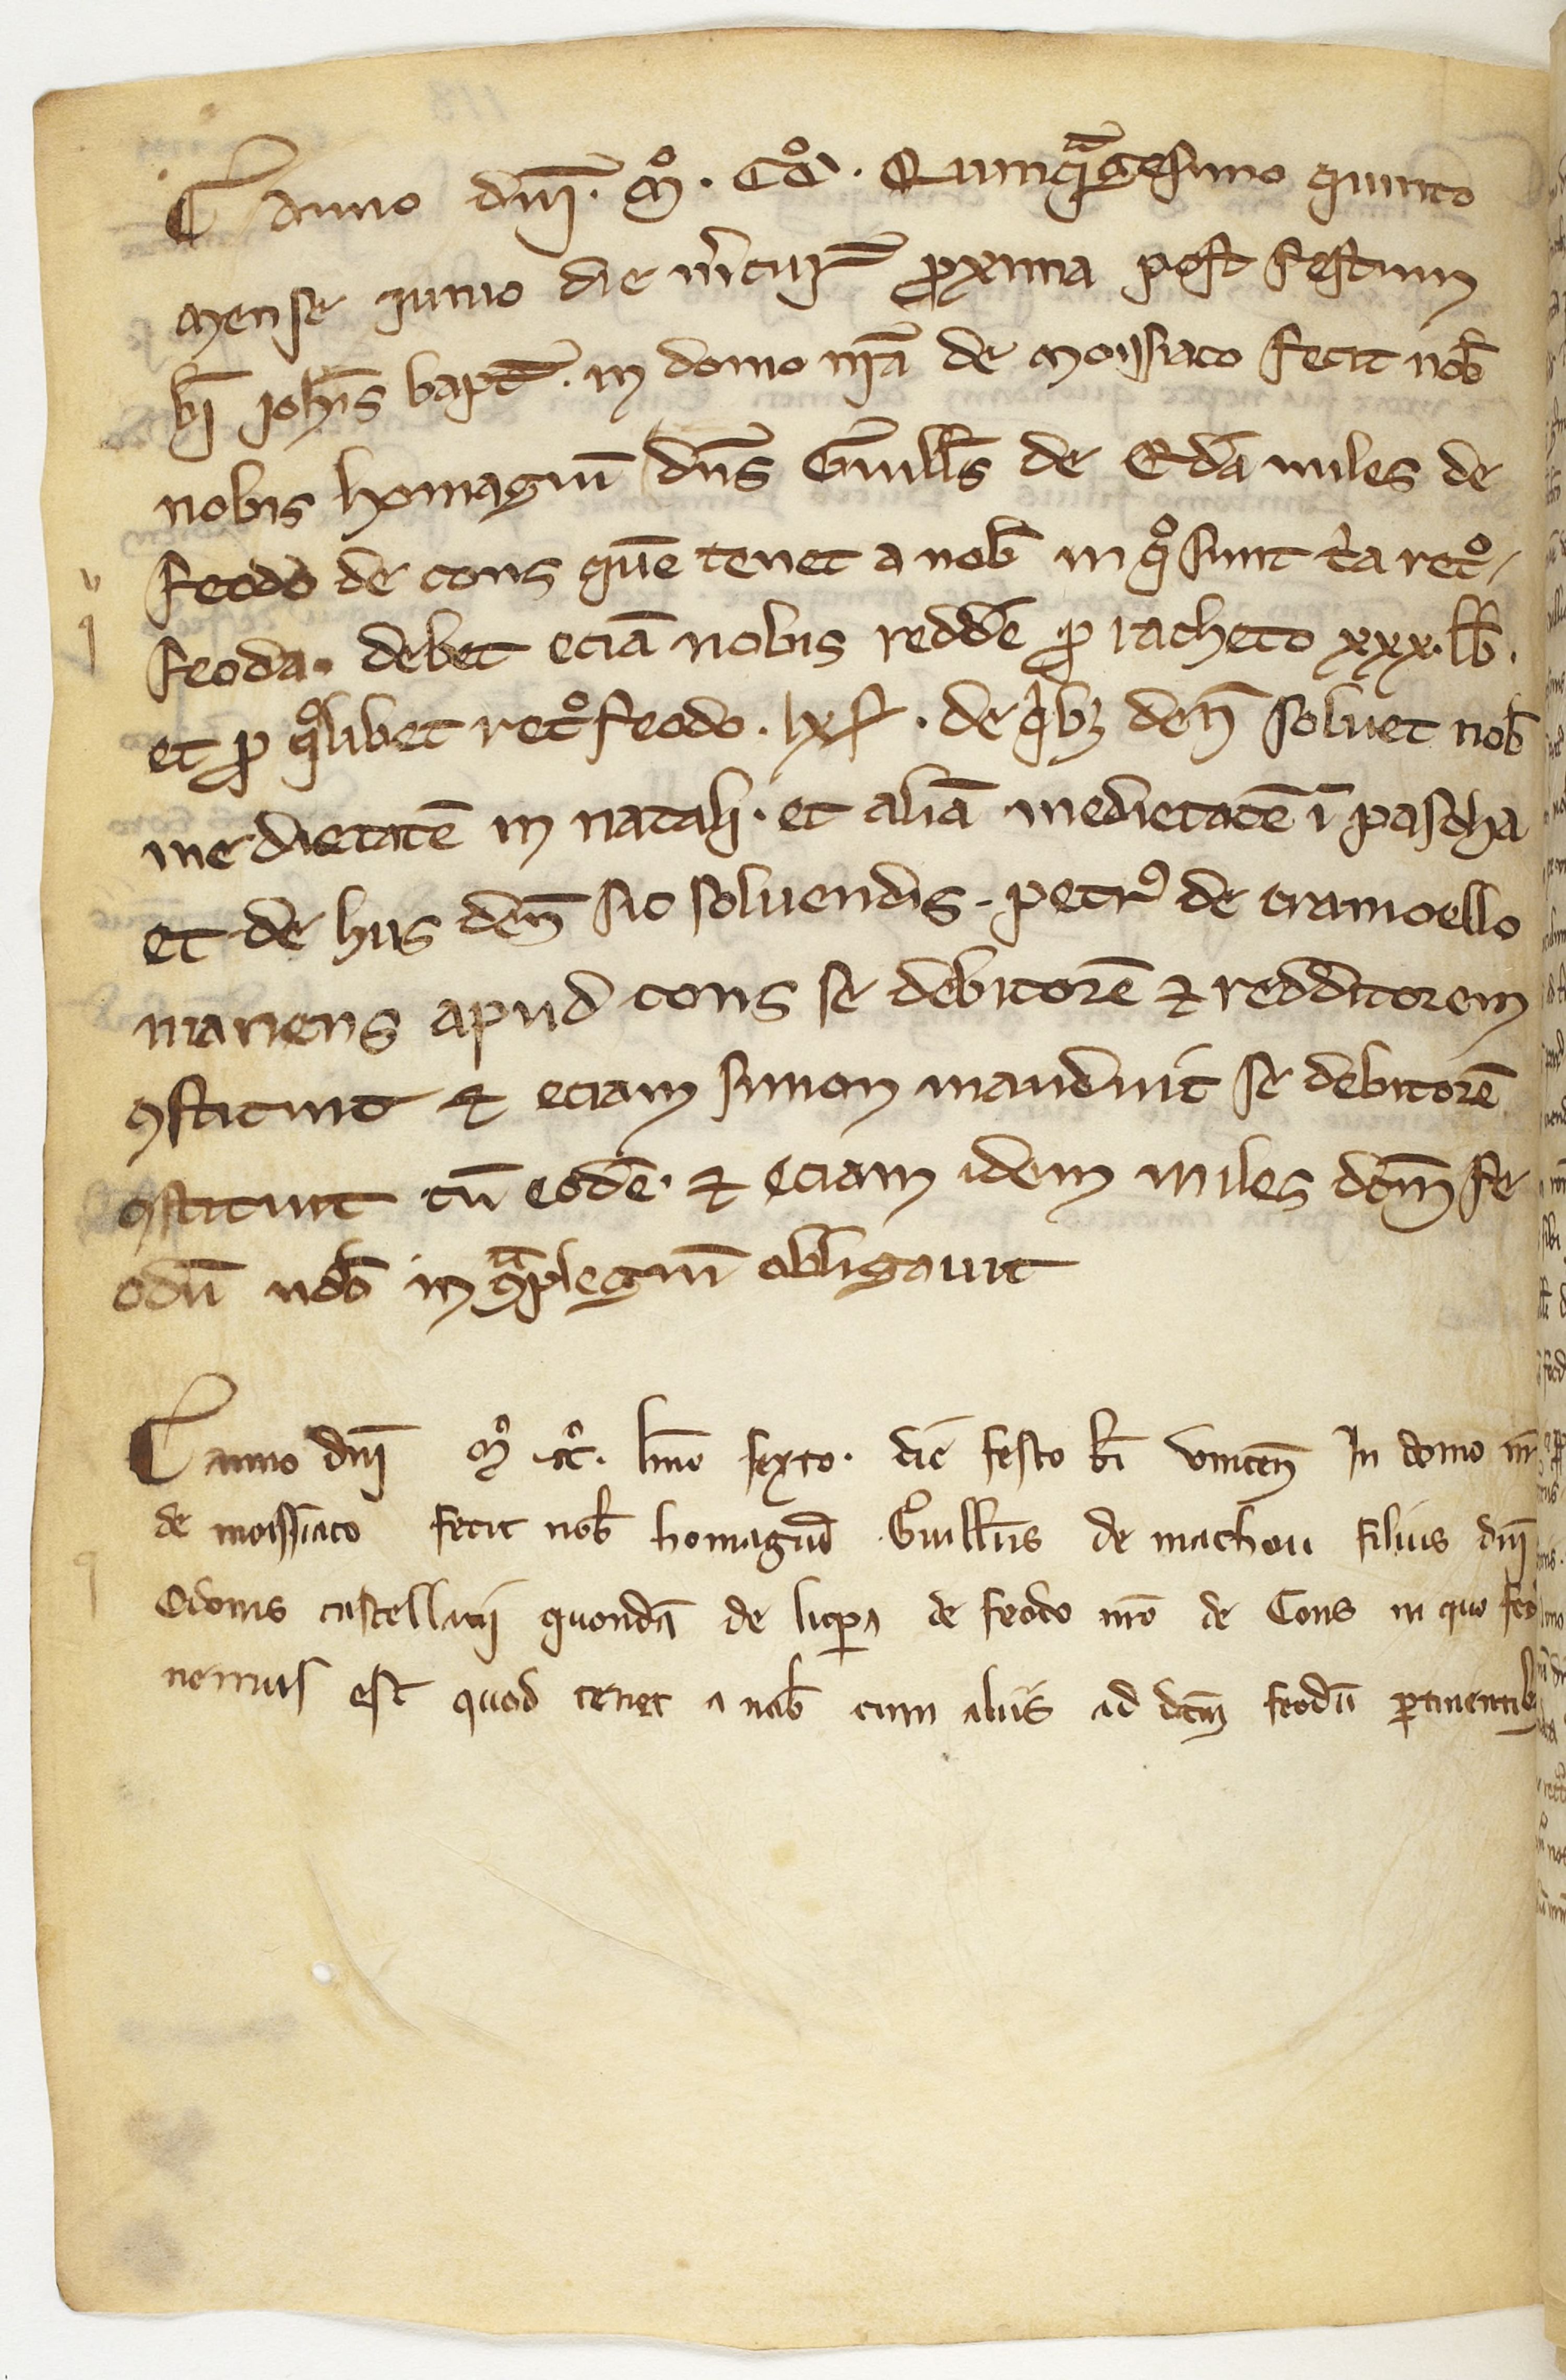 Anno dnī. mͦ. ccͦ. Quinqᵃgesimo quinto
mense junio die m̄curͥ ꝓxima post festum
bī Joh̄is bapt̄. in domo nr̄a de moissiaco fecit nob̄
nobis homagiū dn̄s Guill̄s de Edā miles de
feodo de cons quē tenet a nob̄ in qͦ sunt tͥa retͦ
feoda. debet eciā nobis reddē ꝓ racheto xxx. lb̄.
et ꝓ qͦlibet retͦfeodo. lx ſ. de qͥbꝫ den̄ soluet nob̄
medietatē in natali. et aliā medietatē ī pascha
et de hiis den̄ sic soluendis. petrꝰ de tramoello
manens apud cons se debitorē ⁊ redditorem
ꝯstituit ⁊ eciam simon mauduit se debitorē
ꝯstituit cū eodē. ⁊ eciam idem miles dc̄m fe
odū nob̄ in ꝯᵃplegiū obligauit
Anno dnī mͦ ccͦ. lmo sexto. die festo bī vincen̄ In domo nr̄
de moissiaco fecit nob̄ homagiū Guill̄us de machou filius dnī
Odonis castellani quondā de de feodo nr̄o de Cons in quo feo
nemus est quod tenet a nob̄ cum aliis ad dc̄m feodū ꝑtinentibꝫ